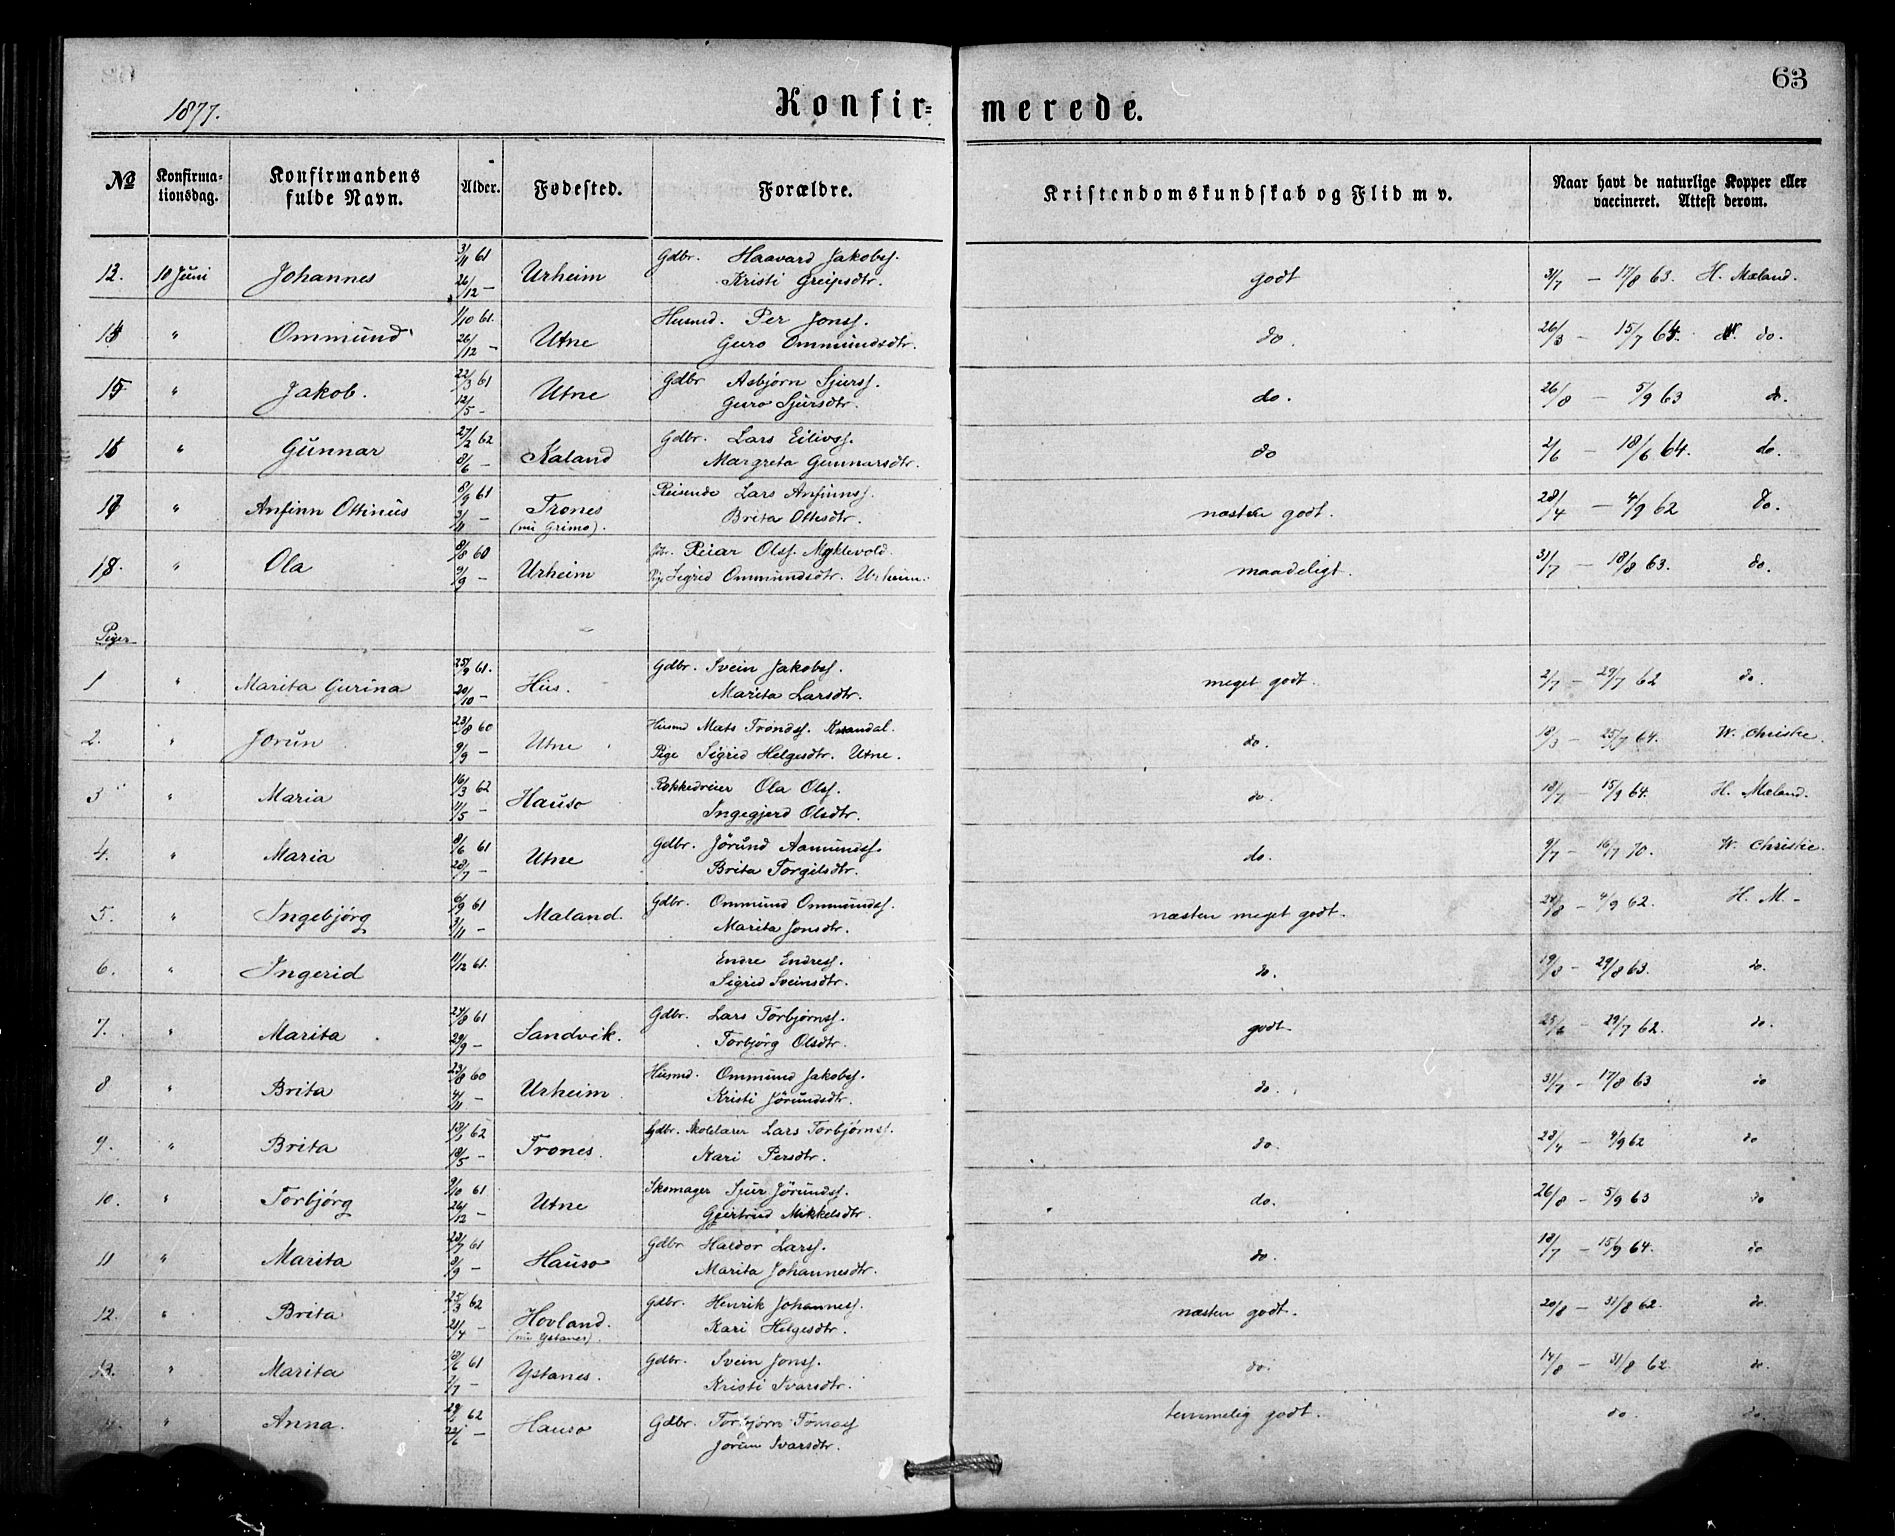 63
1877.
Konfir= merede.
No
Konfirma-
tionsdag.
Konfirmandens
fulde Navn.
Alder.
Fødested.
Forældre.
Kristendomskundskab og Flid m v.
Naar havt de naturlige Kopper eller
vaccineret. Attest derom.
13. 10 Juni Johannes 3/11 61 Urheim Gdbr. Haavard Jakobsf. godt 31/7 — 17/8 63. H. Mæland.
26/12 — Kristi Greipsdtr.
14 " Ommund 1/10 61. Utne Husmd. Per Jonsf. do. 26/3 — 15/7 64. do.
26/12 — Guro Ommundsdtr.
15 " Jakob. 22/3 61 Utne Gdbr Asbjørn Sjursf. do. 26/8 — 5/9 63 do.
12/5 — Guro Sjursdtr.
16 " Gunnar 27/2 62 Kaland Gdbr. Lars Eilivsf. do 2/6 — 18/6 64. do.
8/6 — Margreta Gunnarsdtr.
17 " Anfinn Ottinus 8/9 61 Trones Reisende Lars Anfinnsf. næsten godt. 28/4 — 4/9 62 do.
3/11 — (nu Grimo). Brita Ottesdtr.
18. " Ola 8/8 60 Urheim Reiar Olsf. Myklevold. maadeligt. 31/7 — 18/8 63. do.
9/9 — Pige Sigrid Ommundsdtr. Urheim.
Piger
1 " Marita Gurina 25/9 61. Hus. Gdbr. Svein Jakobsf. meget godt. 2/7 — 29/7 62 do.
20/10 — Marita Larsdtr.
2. " Jorun 23/8 60 Utne Husmd Mats Trondsf. Kvandal. do. 18/3 — 25/7 64. W. Christie.
9/9 — Pige Sigrid Helgesdtr. Utne.
3 " Maria 16/3 62 Hauso Rokkedreier Ola Olsf. do. 18/7 — 15/9 64. H. Mæland.
11/5 — Ingegjerd Olsdtr.
4. " Maria 8/6 61 Utne Gdbr. Jörund Aamundsf. do. 9/7 — 16/7 70. W. Christie.
28/7 — Brita Torgilsdtr.
5. " Ingebjörg 6/9 61 Maland. Gdbr. Ommund Ommundsf. næsten meget godt. 28/8 — 4/9 62. H. M —
3/11 — Marita Jonsdtr.
6. " Ingerid 11/12 61. Endre Endresf. do. 19/8 — 29/8 63. do.
Sigrid Sveinsdtr.
7. " Marita 24/8 61 Sandvik. Gdbr. Lars Torbjørnsf. godt 25/6 — 29/7 62. do.
29/9 — Torbjörg Olsdtr.
8 " Brita 23/8 60 Urheim. Husmd. Ommund Jakobsf. do. 31/7 — 17/8 63 do
4/11 — Kristi Jörundsdtr.
9. " Brita 62 Trones. Gdbr. Skolelærer Lars Torbjørnsf. do. 28/4 — 4/9 62 do
18/5 — Kari Persdtr.
10. " Torbjörg 9/10 61 Utne Skomager Sjur Jörundsf. do. 26/8 — 5/9 63 do
26/12 — Gjertrud Mikkelsdtr.
11 " Marita 28/7 61 Hauso Gdbr Haldor Larsf. do 18/7 — 15/9 64. do
8/9 — Marita Johannesdtr.
12. " Brita 25/3 62 Hovland. Gdbr. Henrik Johannesf. næsten godt. 20/8 — 31/8 62. do.
21/4 — (nu Ystanes). Kari Helgesdtr.
13. " Marita 18/6 61 Ystanes. Gdbr. Svein Jonsf. do. 14/8 — 31/8 62. do.
7/7 — Kristi Ivarsdtr.
" Anna. 62 Hauso Gdbr. Torbjørn Tomasf temmelig godt. do. do.
22/6 — Jorun Ivarsdtr.